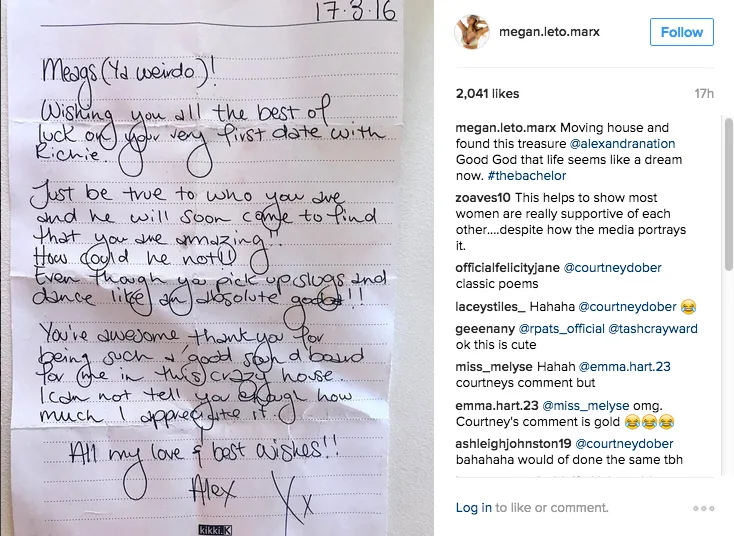 17.3.16
Meags (Ya weirdo)!
Wishing you all the best of
luck on your very first date with
Richie.
Just be true to who you are
and he will soon come to find
that you are amazing!!
How could he not!!
Even though you pick up slugs and
dance like an absolute goose!!
You're awesome thankyou for
being such a good sound board
for me in this crazy house.
I can not tell you enough how
much I appreciate it.
All my love & best wishes!!
Alex
Xx
kikki.K
megan.leto.marx
Follow
2,041 likes
17h
megan.leto.marx Moving house and
found this treasure @alexandranation
Good God that life seems like a dream
now. #thebachelor
zoaves10 This helps to show most
women are really supportive of each
other....despite how the media portrays
it.
officialfelicityjane @courtneydober
classic poems
laceystiles_ Hahaha @courtneydober 😂
geeenany @rpats_official @tashcrayward
ok this is cute
miss_melyse Hahah @emma.hart.23
courtneys comment but
emma.hart.23 @miss_melyse omg.
Courtney's comment is gold 😂😂😂
ashleighjohnston19 @courtneydober
bahahaha would of done the same tbh
Log in to like or comment.